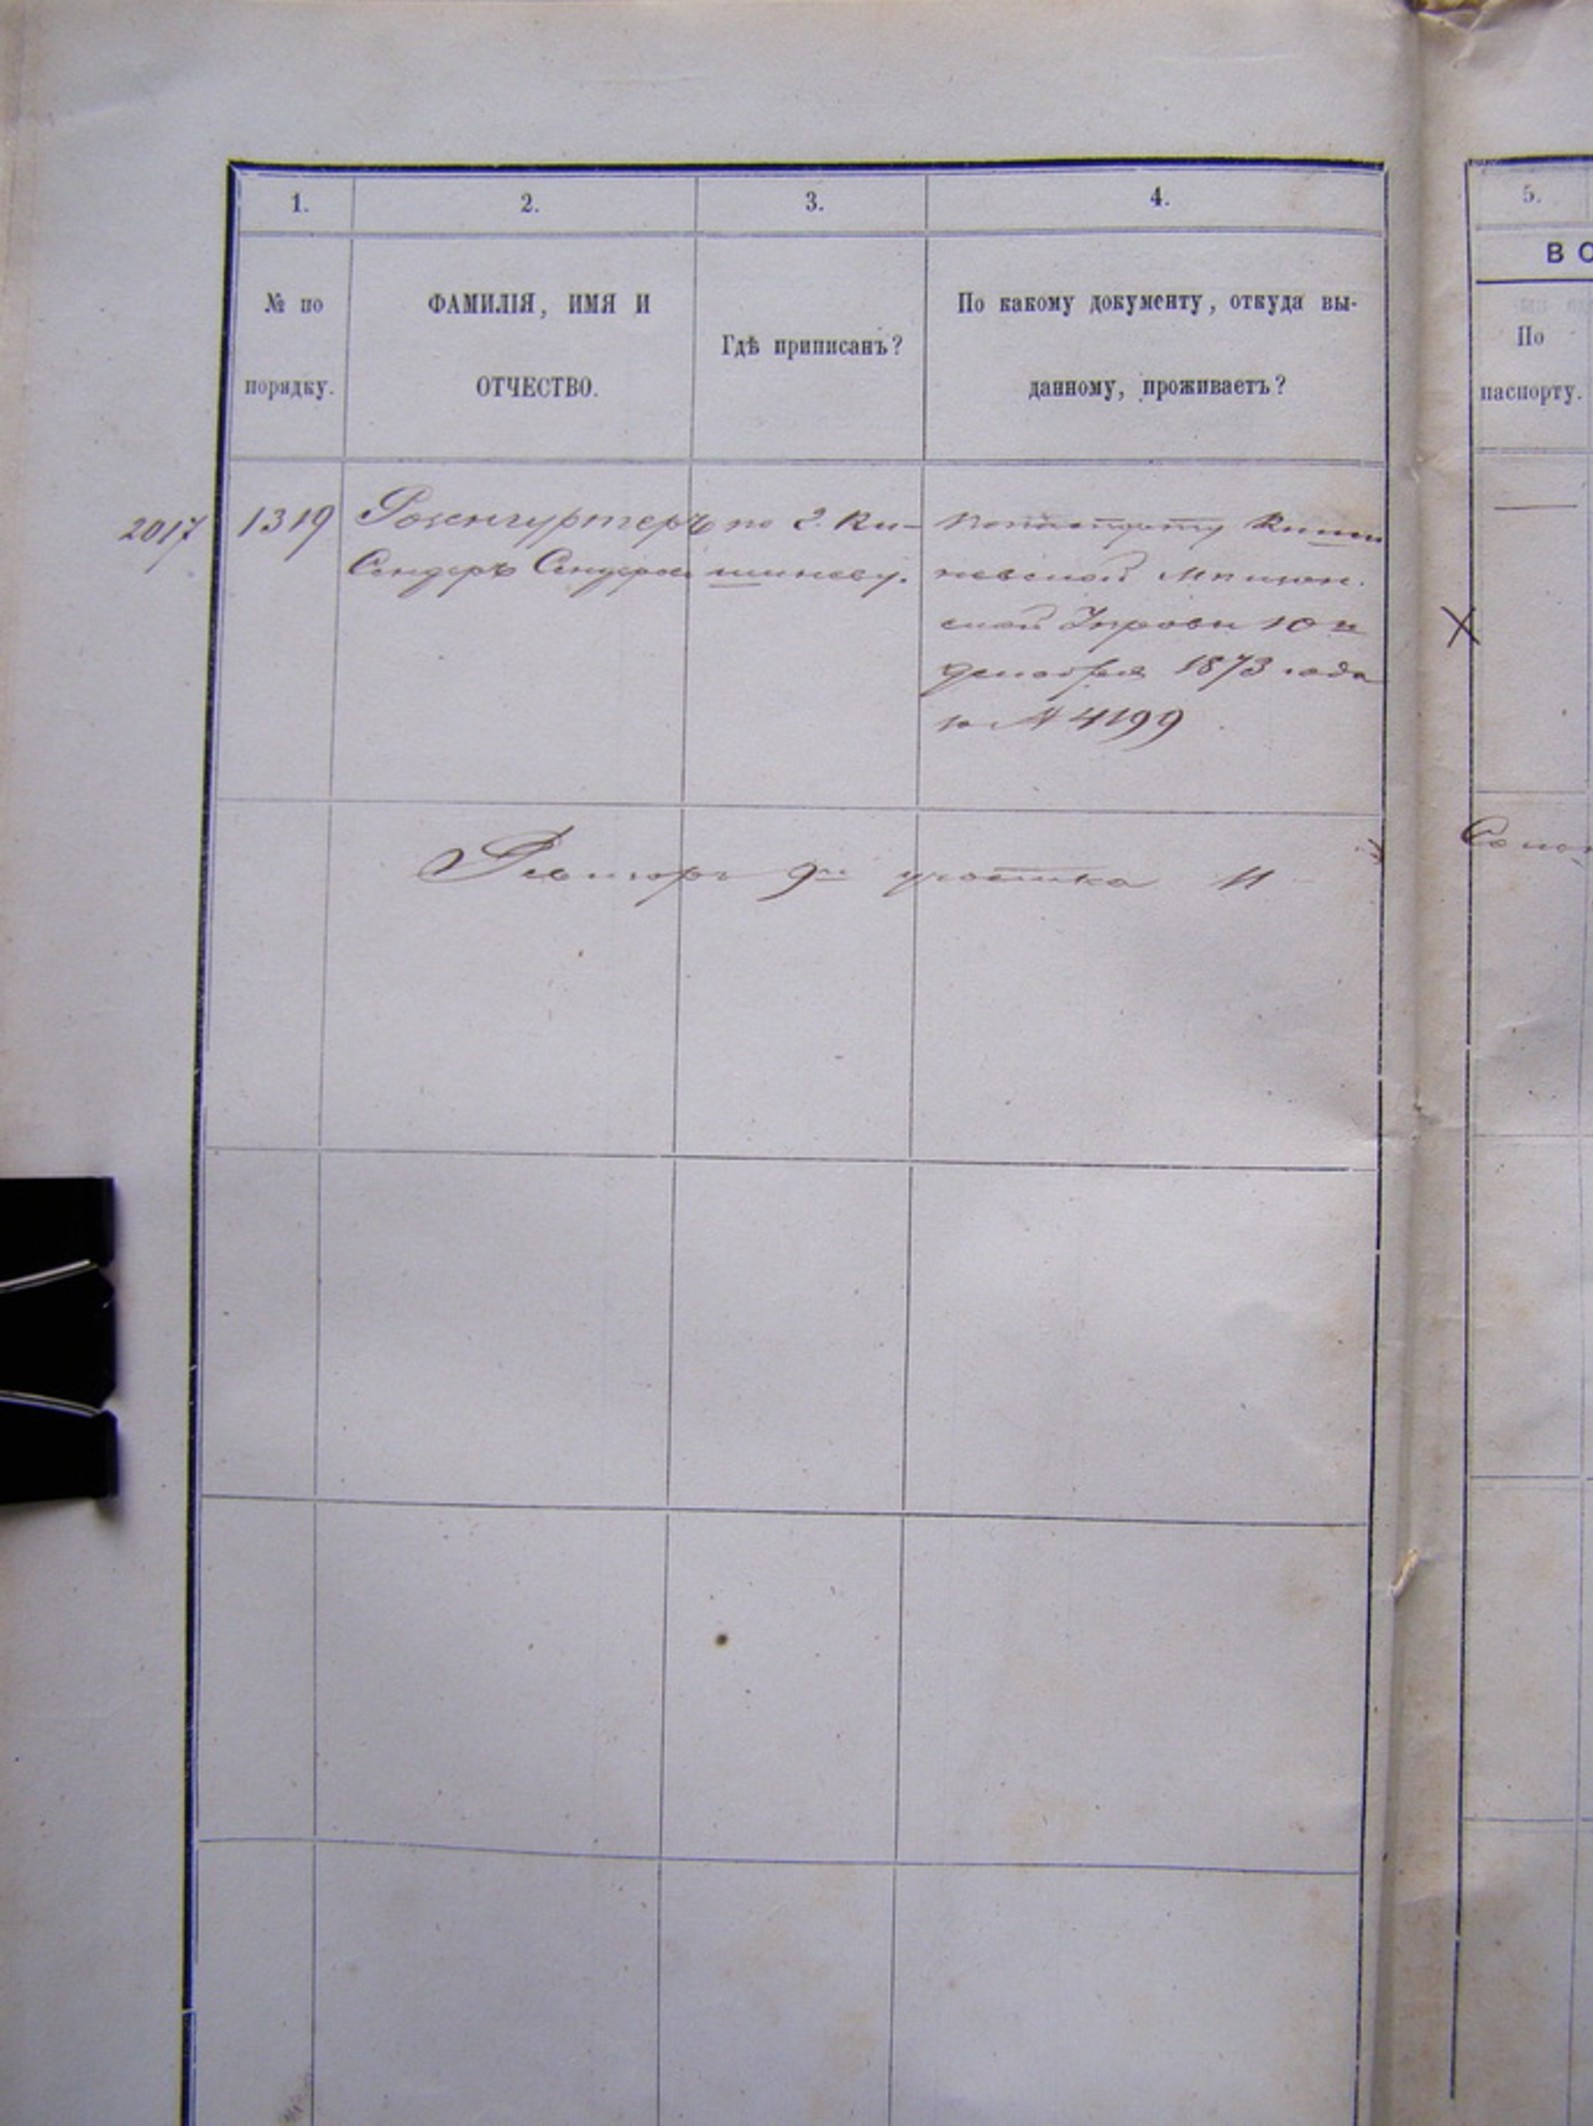 1. 2. 3. 4. 5.
ВО
№ по
порядку.
ФАМИЛІЯ, ИМЯ И
ОТЧЕСТВО.
Гдѣ приписанъ?
По какому документу, откуда вы-
данному, проживаетъ?
По
паспорту.
2017 1319
Розенгуртеръ
Сендеръ
по г. Ки-
шиневу.
Киши
невской Мѣщан.
ской Управы 10го
декабря 1873 года
№ 4199
9го участка